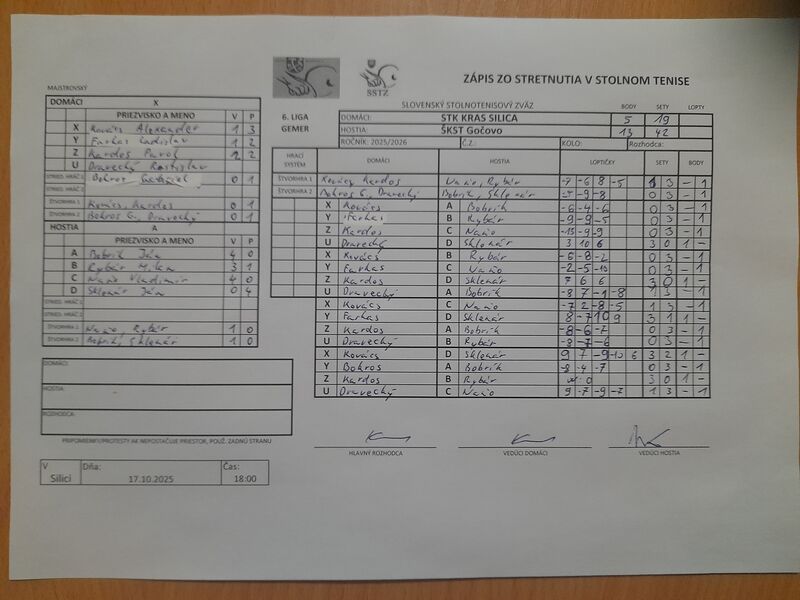 SSTZ
ZÁPIS ZO STRETNUTIA V STOLNOM TENISE
SLOVENSKÝ STOLNOTENISOVÝ ZVÄZ BODY SETY LOPTY
6. LIGA DOMÁCI: STK KRAS SILICA 5 19
GEMER HOSTIA: ŠKST Gočovo 13 42
ROČNÍK: 2025/2026 Č.Z.: KOLO: Rozhodca:
MAJSTROVSKÝ
DOMÁCI X
PRIEZVISKO A MENO V P
X Kovács Alexander 1 3
Y Farkas Ladislav 1 2
Z Kardos Pavol 2 2
U Dravecký Rastislav
STRIED. HRÁČ 1 Bokros Gabriel 0 1
STRIED. HRÁČ 2
ŠTVORHRA 1 Kovács, Kardos 0 1
ŠTVORHRA 2 Bokros G. Dravecký 0 1
HOSTIA A
PRIEZVISKO A MENO V P
A Bobrík Ján 4 0
B Rybár Milan 3 1
C Naňo Vladimír 4 0
D Sklenár Ján 0 4
STRIED. HRÁČ 1
STRIED. HRÁČ 2
ŠTVORHRA 1 Naňo, Rybár 1 0
ŠTVORHRA 2 Bobrík, Sklenár 1 0
DOMÁCI:
HOSTIA:
ROZHODCA:
PRIPOMIENKY/PROTESTY AK NEPOSTAČUJE PRIESTOR, POUŽ. ZADNÚ STRANU
V Silici Dňa: 17.10.2025 Čas: 18:00
HRACÍ SYSTÉM DOMÁCI HOSTIA LOPTIČKY SETY BODY
ŠTVORHRA 1 Kovács Kardos Naňo, Rybár -7 -6 8 -5 1 3 - 1
ŠTVORHRA 2 Bokros G. Dravecký Bobrík, Sklenár -5 -9 -8 0 3 - 1
X Kovács A Bobrík -6 -4 -6 0 3 - 1
Y Farkas B Rybár -9 -9 -5 0 3 - 1
Z Kardos C Naňo -15 -9 -9 0 3 - 1
U Dravecký D Sklenár 3 10 6 3 0 1 -
X Kovács B Rybár -6 -8 -2 0 3 - 1
Y Farkas C Naňo -2 -5 -10 0 3 - 1
Z Kardos D Sklenár 7 6 6 3 0 1 -
U Dravecký A Bobrík -8 7 -1 -8 1 3 - 1
X Kovács C Naňo -7 2 -8 -5 1 3 - 1
Y Farkas D Sklenár 8 -7 10 9 3 1 1 -
Z Kardos A Bobrík -8 -6 -7 0 3 - 1
U Dravecký B Rybár -8 -7 -6 0 3 - 1
X Kovács D Sklenár 9 7 -9 -10 6 3 2 1 -
Y Bokros A Bobrík -8 -4 -7 0 3 - 1
Z Kardos B Rybár 3 0 1 -
U Dravecký C Naňo 9 -7 -9 -7 1 3 - 1
HLAVNÝ ROZHODCA VEDÚCI DOMÁCI VEDÚCI HOSTIA